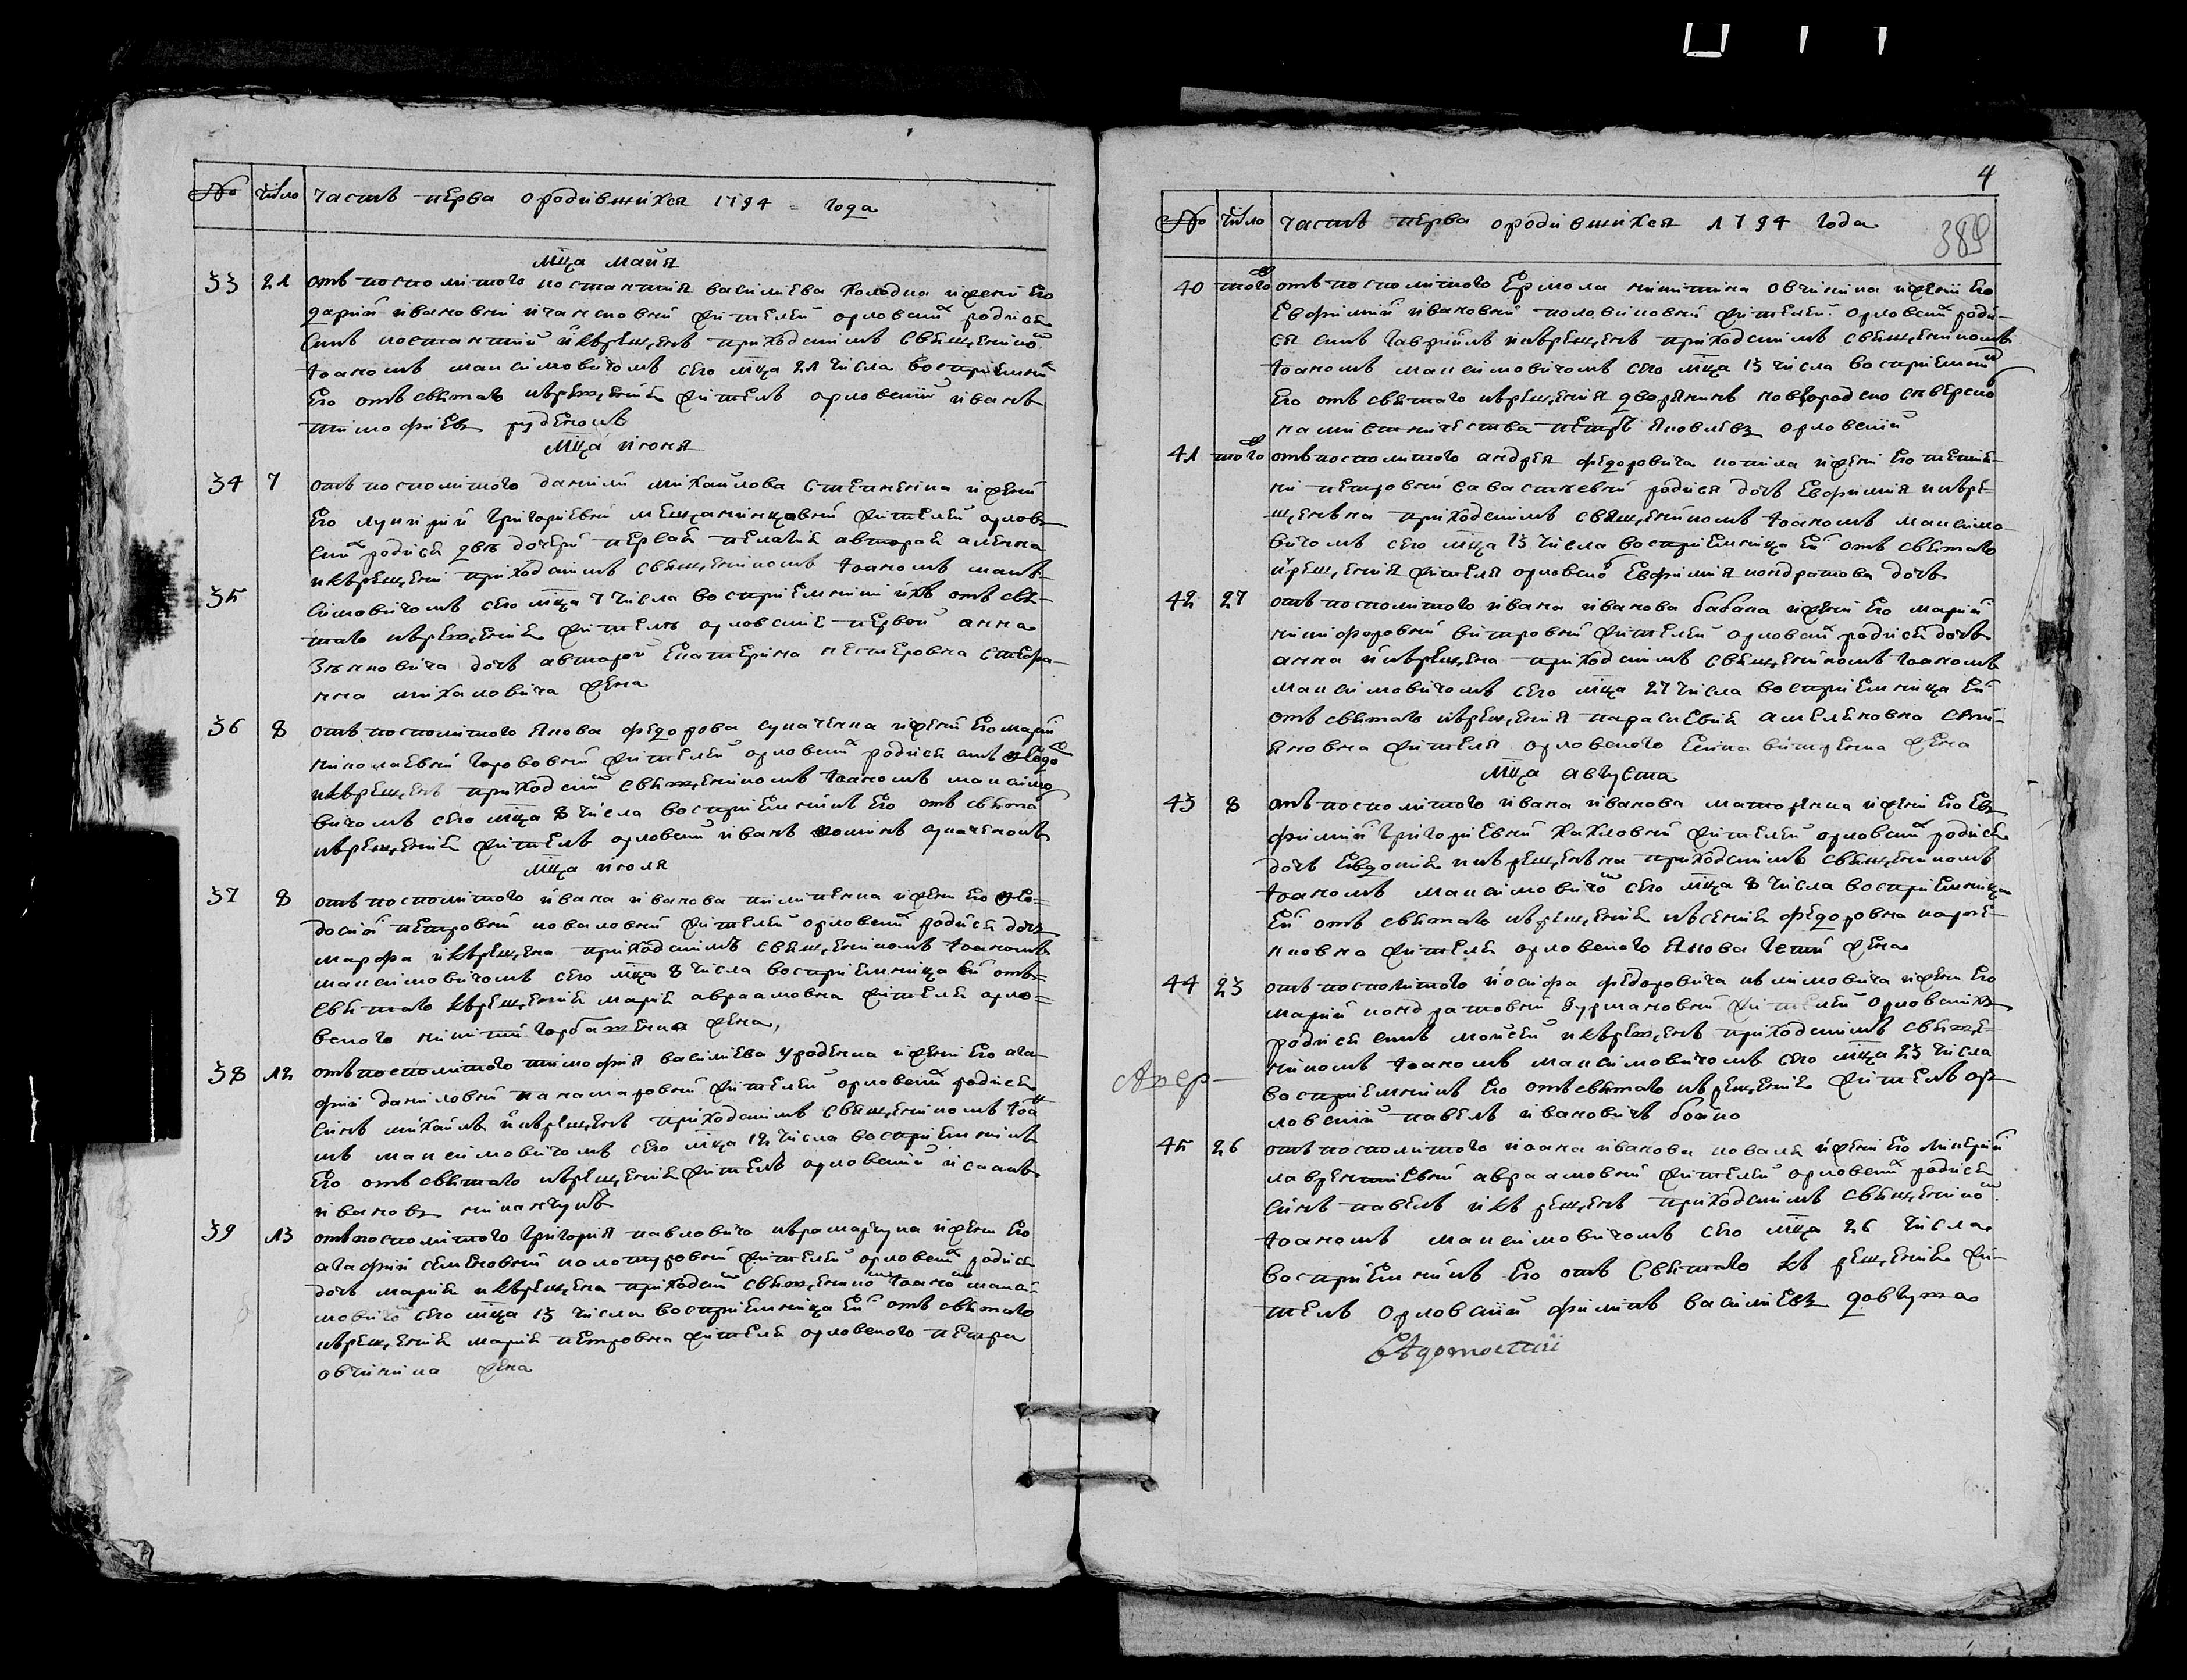 № число часть перва о родившихся 1794 = года
мца майя
33 21 отъ посполитого константия василиева холодна и жени его
дарии ивановни жителей орловских родися
синъ константий и крещенъ приходским священико
иоаномъ максимовичомъ сего мца 21 числа восприемник
его отъ святаго крещения житель орловский иванъ
тимофиевъ руденокъ
мца июня
34 7 отъ посполитого данили михайлова степненка и жени
его лукирии григориевни мещанинцовни жителей орлов-
ских родися две дочери первая пелагия авторая аленна
и крещени приходским священиком иоаномъ макъ-
35 симовичомъ сего мца 7 числа восприемники ихъ отъ свя-
таго крещения жители орловские первой анна
зенковича дочъ авторой екатерина нестеровна
михаловича жена
36 8 отъ посполитого якова федорова супаченка и жени его марии
николаевни горовой жителей орловских родися синъ
и крещенъ приходским священиком иоаномъ максимо
вичомъ сего мца 8 числа восприемникъ его отъ святаго
крещения житель орловский иванъ супаченокъ
мца июля
37 8 отъ посполитого ивана иванова пилипенка и жени его фео-
досии петровни коваловни жителей орловских родися дочъ
марфа и крещена приходским священиком иоаномъ
максимовичомъ сего мца 8 числа восприемница ей отъ
святаго крещения мария авраамовна жителя орло-
вского никити горбатенка жена,
38 12 отъ посполитого тимофия василиева уроденка и жени его ага-
фии даниловни панамаровни жителей орловских родися
синъ михаилъ и крещенъ приходским священиком иоа
мъ максимовичомъ сего мца 12 числа восприемникъ
его отъ святаго крещения житель орловский исаакъ
ивановъ
39 13 отъ посполитого григория павловича крамарчука и жени его
агафии семеновни жителей орловских родися
дочъ мария и крещена приходским священико иоано макси-
мовичо сего мца 13 числа восприемница ей отъ святаго
крещения мария петровна жителя орловского петра
овчиника жена
4
389
№ число часть перва о родившихся 1794 года
40 того отъ посполитого ермола никитина овчиника и жени его
евфимии ивановни половиновни жителей орловских роди-
ся синъ гавриилъ и крещенъ приходским священикомъ
иоаномъ максимовичомъ сего мца 13 числа восприемник
его отъ святаго крещения дворянинъ новгородско северско
намистничества петръ яковлевъ орловский
41 того отъ посполитого андрея федоровича копила и жени его
петровни савастьевни родися дочъ евфимия и кре-
щенна приходским священикомъ иоаномъ максимо-
вичомъ сего мца 13 числа восприемница ей отъ святаго
крещения жителя орловско евфимия кондратова дочъ
42 27 отъ посполитого ивана иванова бабака и жени его марии
никифоровни витровни жителей орловских родися дочъ
анна и крещена приходским священикомъ иоаномъ
максимовичомъ сего мца 27 числа восприемница ей
отъ святаго крещения параскевия амеляновна
яновна жителя орловского витренка жена
мца августа
43 8 отъ посполитого ивана иванова маторенка и жени его ев-
фимии григориевни хахловни жителей орловских родися
дочъ евдокия и крещенна приходским священикомъ
иоаномъ максимовичо сего мца 8 числа восприемница
ей отъ святаго крещения ксения федоровна карпе-
нковна жителя орловского якова жена
44 23 отъ посполитого иосифа федоровича климовича и жени его
марии кондратовни дурмановни жителей орловских
родися синъ моисей и крещенъ приходским свяще-
никомъ иоаномъ максимовичомъ сего мца 23 числа
восприемникъ его отъ святаго крещения житель ор-
ловский павелъ ивановичъ бойко
45 26 отъ посполитого иоана иванова коваля и жени его гликерии
лаврентиевни авраамовни жителей орловских родися
синъ павелъ и крещенъ приходским священико
иоаномъ максимовичомъ сего мца 26 числа
восприемникъ его отъ святаго крещения жи-
тель орловский филипъ василиевъ довгуша